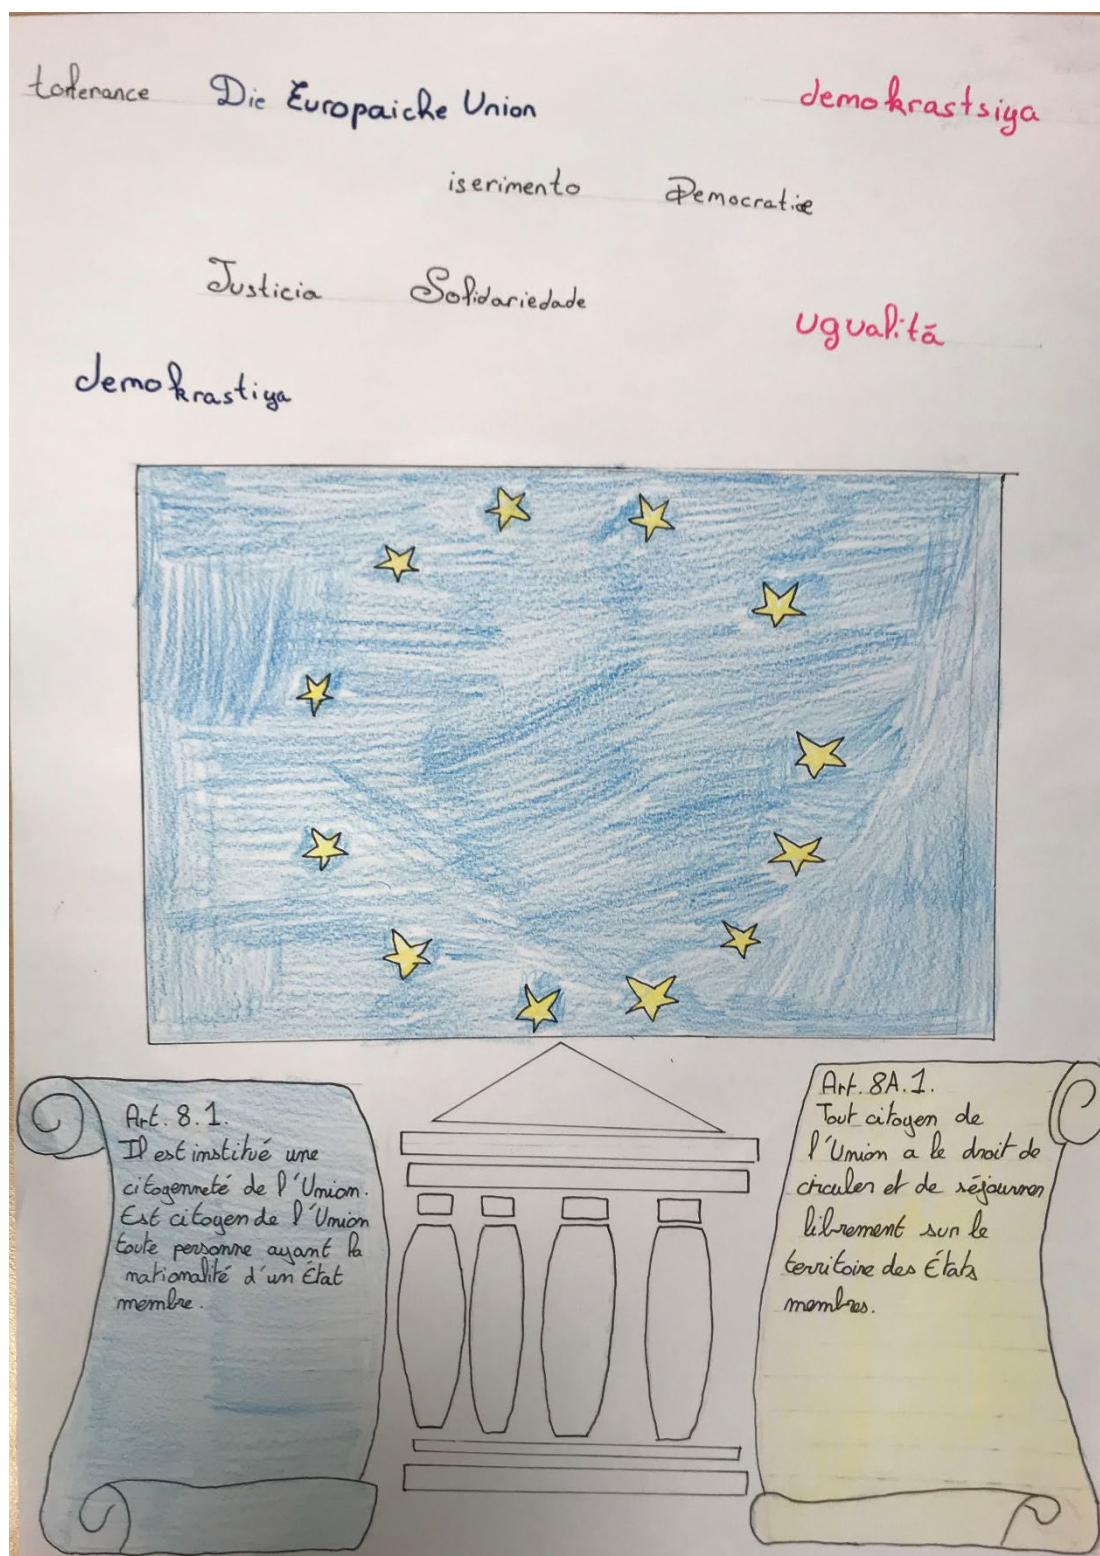 tolerance Die Europaiche Union demokrastsiya
iserimento Democratie
Justicia Solidariedade
ugualitā
demokrastiya
Art. 8.1.
Il est institué une
citogenneté de l'Union.
Est citoyen de l'Union
toute personne ayant la
nationalité d'un État
membre.
Art. 8A.1.
Tout citoyen de
l'Union a le droit de
circuler et de séjourner
librement sur le
territoire des États
membres.